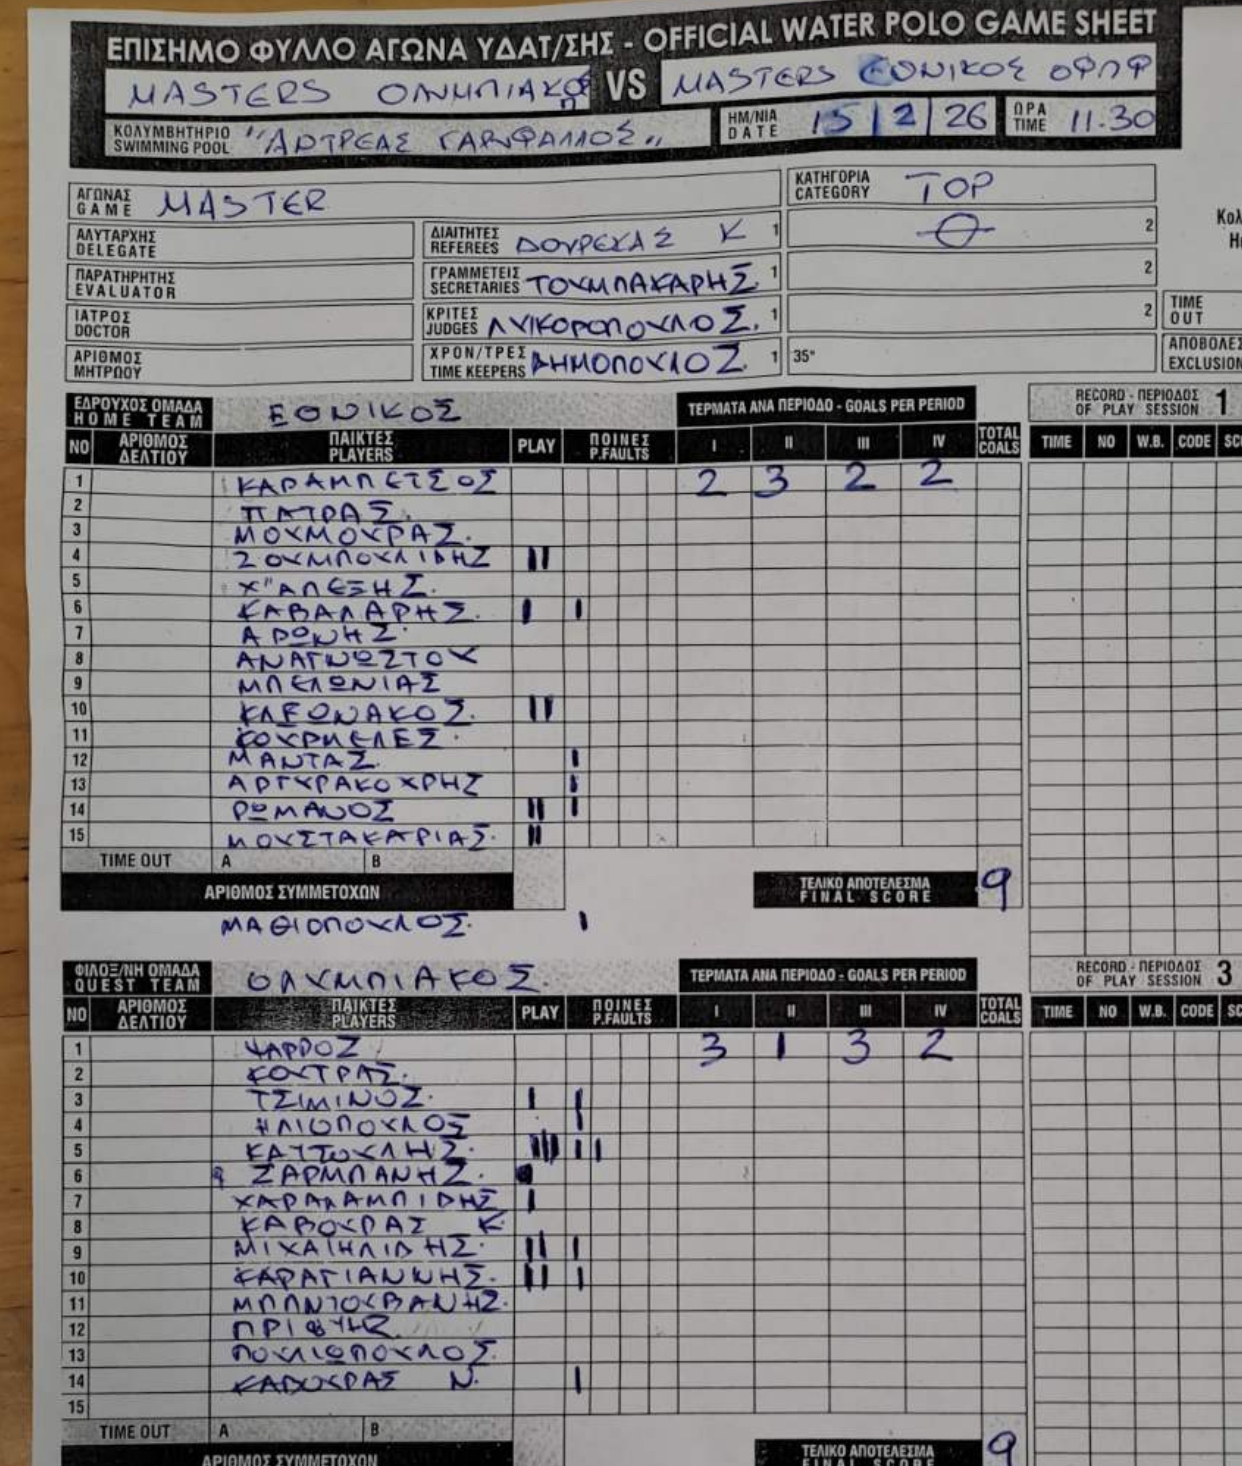 ΕΠΙΣΗΜΟ ΦΥΛΛΟ ΑΓΩΝΑ ΥΔΑΤ/ΣΗΣ - OFFICIAL WATER POLO GAME SHEET
MASTERS ΟΛΥΜΠΙΑΚΟΣ VS MASTERS ΕΘΝΙΚΟΣ ΟΦΠΦ
ΚΟΛΥΜΒΗΤΗΡΙΟ SWIMMING POOL ΗΜ/ΝΙΑ DATE 15 | 2 | 26 ΩΡΑ TIME 11.30
ΑΓΩΝΑΣ GAME MASTER ΚΑΤΗΓΟΡΙΑ CATEGORY TOP
ΑΛΥΤΑΡΧΗΣ DELEGATE ΔΙΑΙΤΗΤΕΣ REFEREES ΔΟΥΡΕΚΑΣ Κ 1 2
ΠΑΡΑΤΗΡΗΤΗΣ EVALUATOR ΓΡΑΜΜΕΤΕΙΣ SECRETARIES ΤΟΥΜΠΑΚΑΡΗΣ 1 2
ΙΑΤΡΟΣ DOCTOR ΚΡΙΤΕΣ JUDGES ΛΥΙΚΟΡΟΠΟΥΛΟΣ. 1 2 TIME OUT
ΑΡΙΘΜΟΣ ΜΗΤΡΩΟΥ ΧΡΟΝ/ΤΡΕΣ TIME KEEPERS ΔΗΜΟΠΟΥΛΟΣ 1 35" ΑΠΟΒΟΛΕΣ EXCLUSION
ΕΔΡΟΥΧΟΣ ΟΜΑΔΑ HOME TEAM ΕΘΝΙΚΟΣ ΤΕΡΜΑΤΑ ΑΝΑ ΠΕΡΙΟΔΟ - GOALS PER PERIOD RECORD - ΠΕΡΙΟΔΟΣ OF PLAY SESSION 1
NO ΑΡΙΘΜΟΣ ΔΕΛΤΙΟΥ ΠΑΙΚΤΕΣ PLAYERS PLAY ΠΟΙΝΕΣ P.FAULTS I II III IV TOTAL COALS TIME NO W.B. CODE
1 ΚΑΡΑΜΠΕΤΣΟΣ 2 3 2 2
2 ΠΑΤΡΑΣ.
3 ΜΟΥΜΟΥΡΑΣ.
4 ΖΟΥΜΠΟΥΛΙΔΗΣ II
5 Χ"ΑΛΕΞΗΣ.
6 ΚΑΒΑΛΑΡΗΣ. I I
7 ΑΡΩΝΗΣ.
8 ΑΝΑΓΝΩΣΤΟΥ
9 ΜΠΕΛΩΝΙΑΣ
10 ΚΛΕΩΝΑΚΟΣ. II
11 ΚΟΥΡΜΕΛΕΣ.
12 ΜΑΝΤΑΣ. I
13 ΑΡΓΥΡΑΚΟΧΡΗΣ I
14 ΡΩΜΑΝΟΣ II I
15 ΜΟΥΣΤΑΚΑΡΙΑΣ. II
TIME OUT A B
ΑΡΙΘΜΟΣ ΣΥΜΜΕΤΟΧΩΝ ΤΕΛΙΚΟ ΑΠΟΤΕΛΕΣΜΑ FINAL SCORE 9
ΜΑΘΙΟΠΟΥΛΟΣ. I
ΦΙΛΟΞ/ΝΗ ΟΜΑΔΑ QUEST TEAM ΟΛΥΜΠΙΑΚΟΣ. ΤΕΡΜΑΤΑ ΑΝΑ ΠΕΡΙΟΔΟ - GOALS PER PERIOD RECORD - ΠΕΡΙΟΔΟΣ OF PLAY SESSION 3
NO ΑΡΙΘΜΟΣ ΔΕΛΤΙΟΥ ΠΑΙΚΤΕΣ PLAYERS PLAY ΠΟΙΝΕΣ P.FAULTS I II III IV TOTAL COALS TIME NO W.B. CODE
1 ΨΑΡΡΟΣ 3 1 3 2
2 ΚΟΥΤΡΑΣ.
3 ΤΣΙΜΙΝΟΣ. I I
4 ΗΛΙΟΠΟΥΛΟΣ I
5 ΚΑΥΤΟΥΛΗΣ. IIII I I
6 ΖΑΡΜΠΑΝΗΣ.
7 ΧΑΡΑΛΑΜΠΙΔΗΣ I
8 ΚΑΒΟΥΡΑΣ Κ.
9 ΜΙΧΑΙΗΛΙΔΗΣ. II I
10 ΚΑΡΑΓΙΑΝΝΗΣ. II I
11
12
13 ΠΟΥΛΙΟΠΟΥΛΟΣ.
14 ΚΑΒΟΥΡΑΣ Ν. I
15
TIME OUT A B
ΑΡΙΘΜΟΣ ΣΥΜΜΕΤΟΧΩΝ ΤΕΛΙΚΟ ΑΠΟΤΕΛΕΣΜΑ FINAL SCORE 9